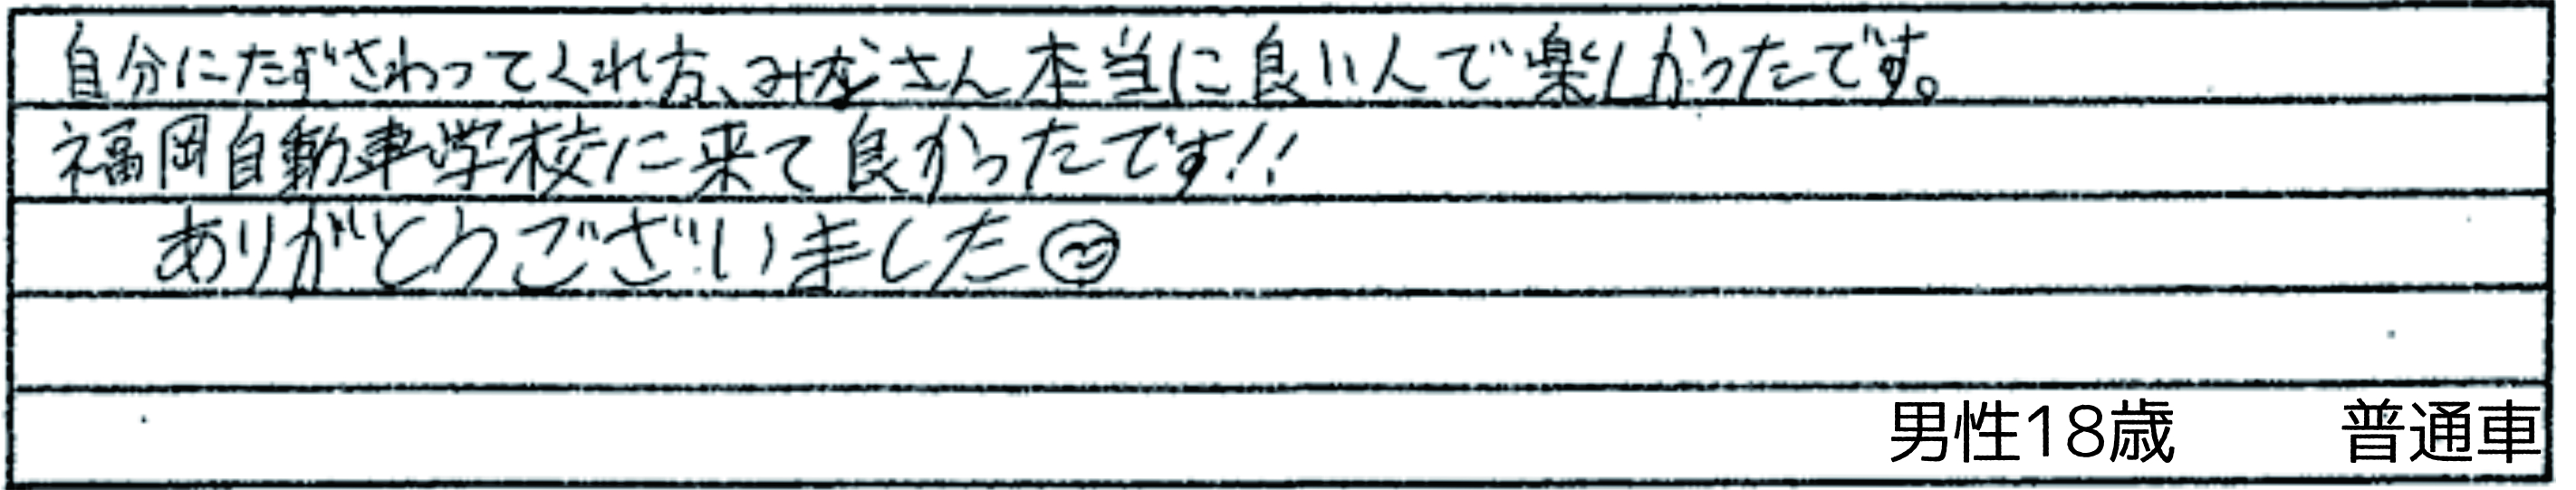 自分にたずさわってくれ方、みなさん本当に良い人で楽しかったです。
福岡自動車学校に来て良かったです!!
ありがとうございました
男性18歳 普通車